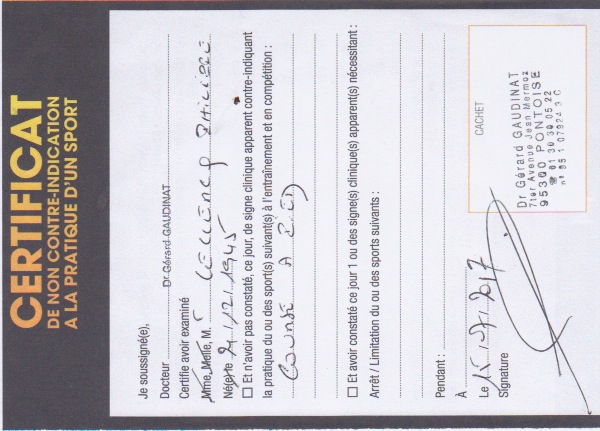 CERTIFICAT
DE NON CONTRE-INDICATION
A LA PRATIQUE D'UN SPORT
Je soussigné(e),
Docteur Dr Gérard GAUDINAT
Certifie avoir examiné
Mme, Melle, M.
Né(e) le
Et n'avoir pas constaté, ce jour, de signe clinique apparent contre-indiquant
la pratique du ou des sport(s) suivant(s) à l'entraînement et en compétition :
COURSE A PIED
Et avoir constaté ce jour 1 ou des signe(s) clinique(s) apparent(s) nécessitant :
Arrêt / Limitation du ou des sports suivants :
Pendant :
À
Le
Signature
CACHET
Dr Gérard GAUDINAT
Avenue Jean Mermoz
95300 PONTOISE
☎ 01 30 30 05 22